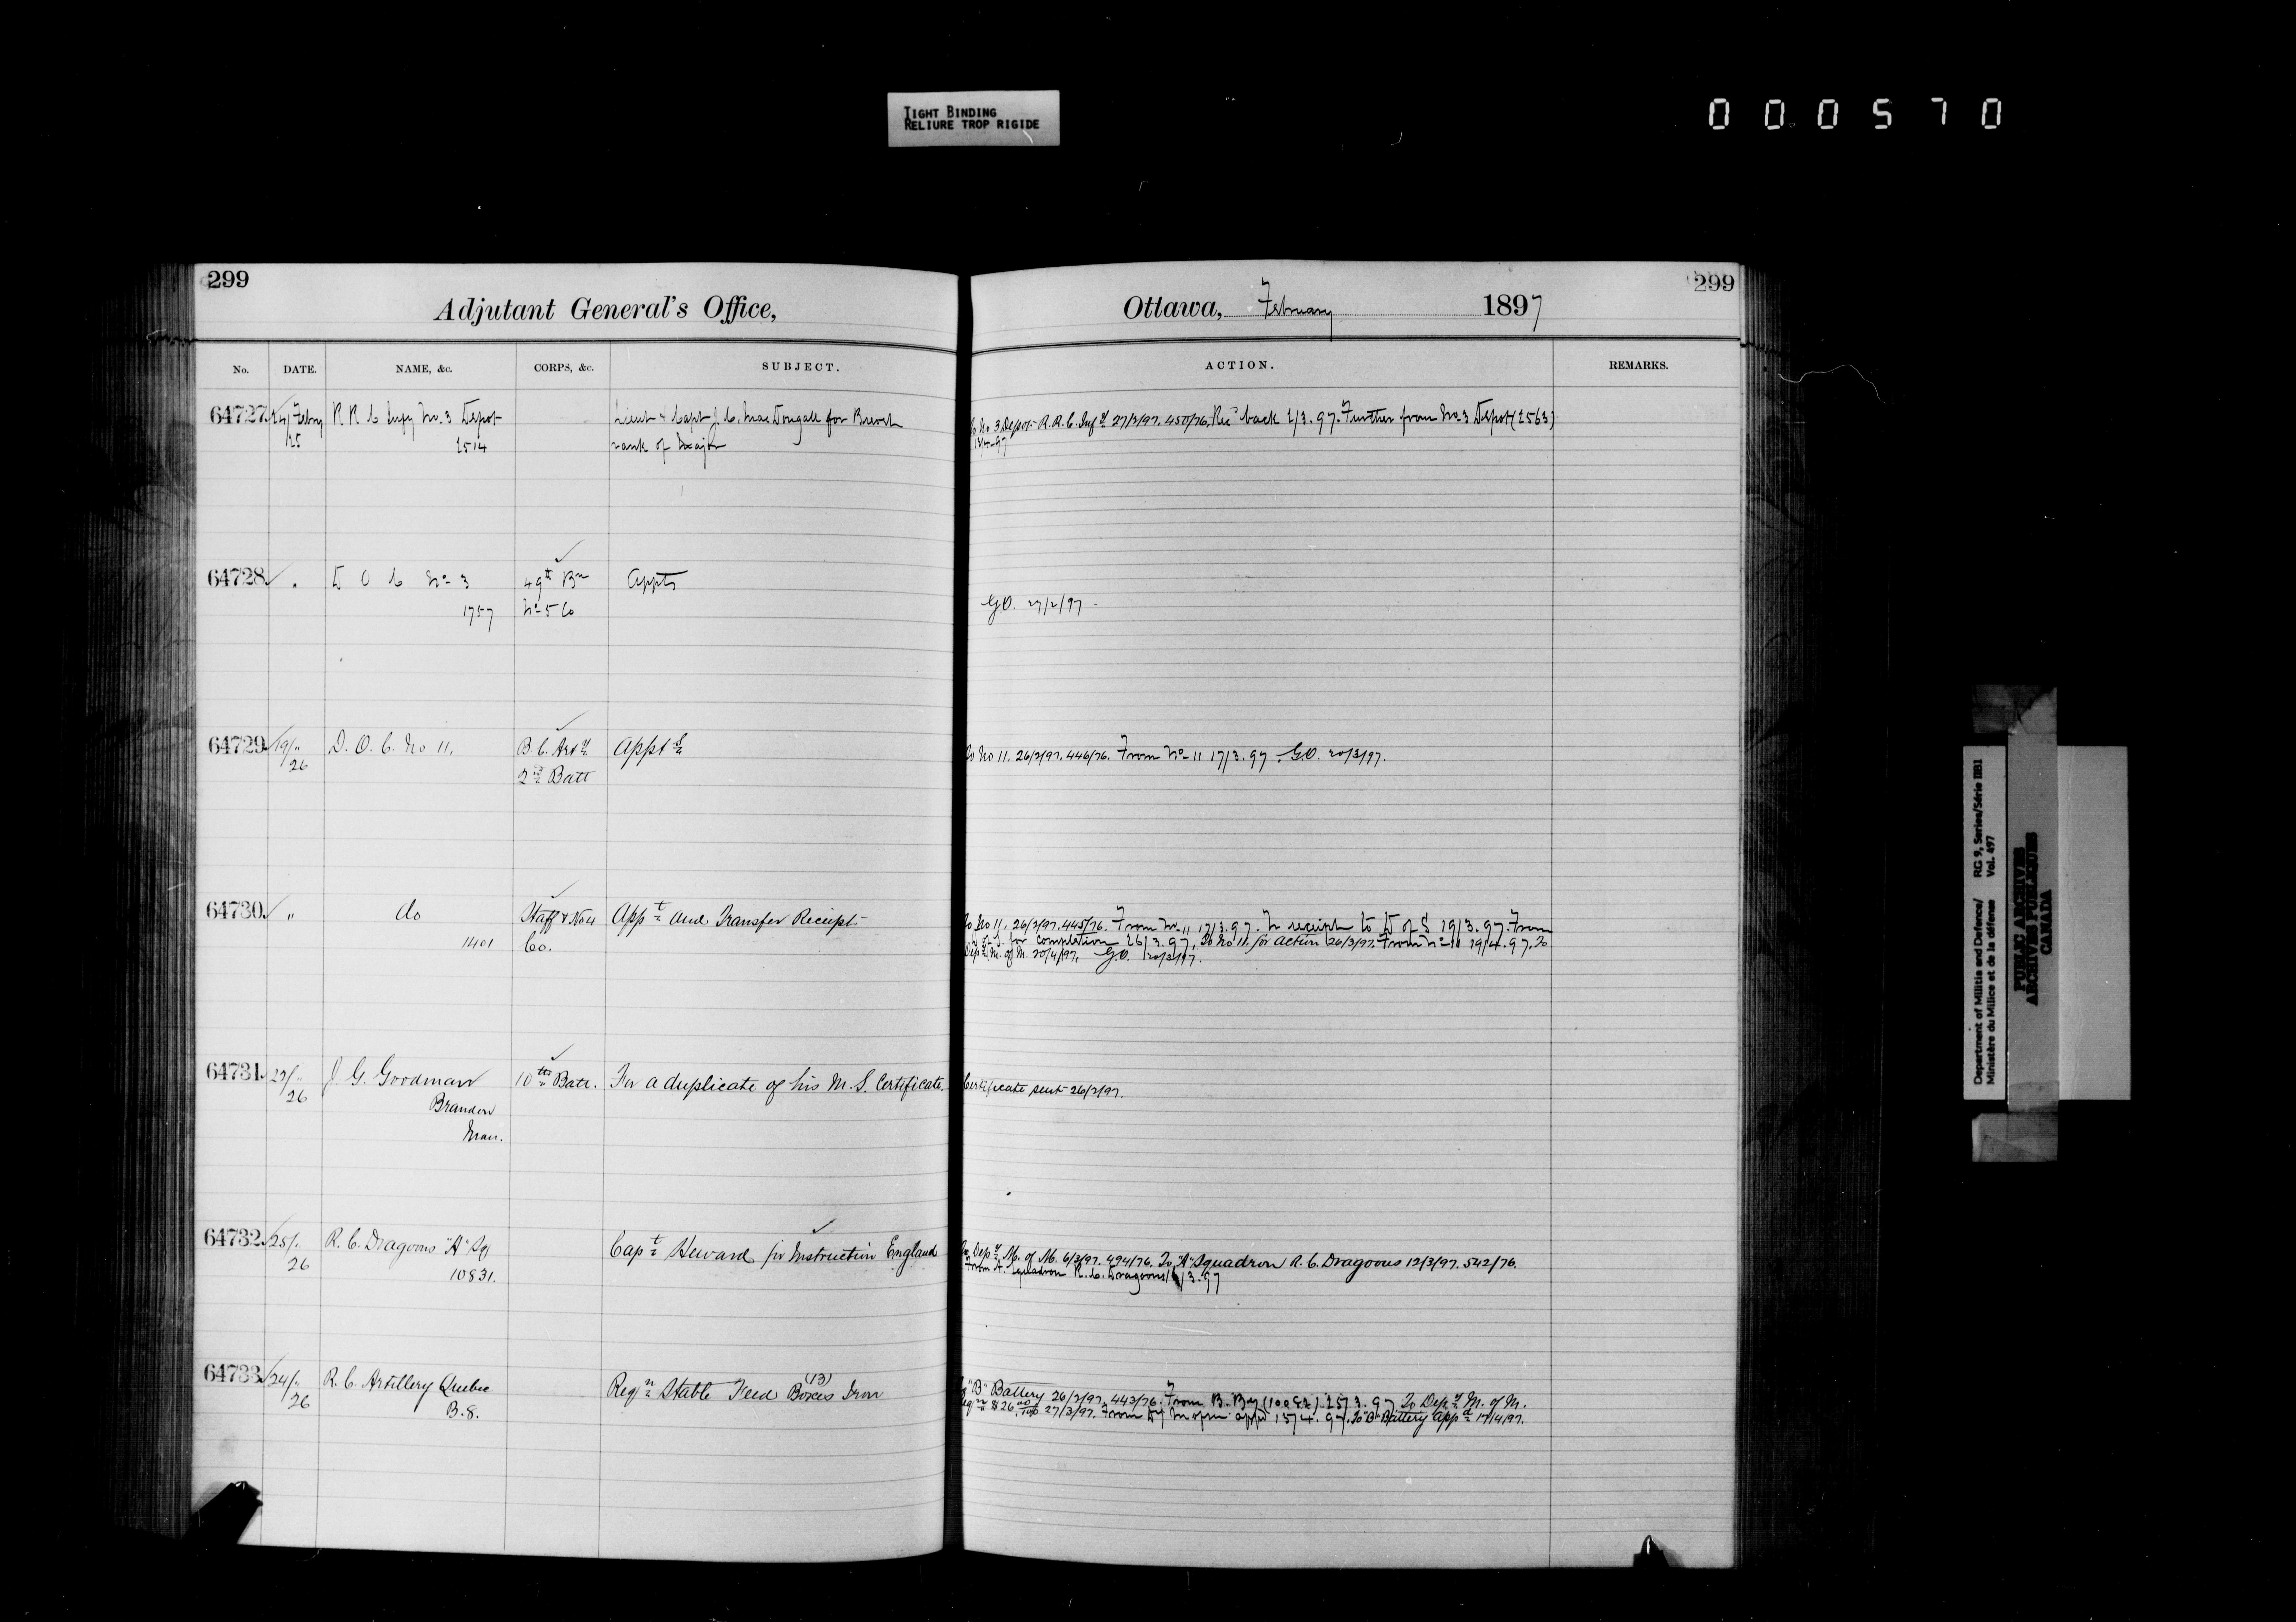 TIGHT BINDING
RELIURE TROP RIGIDE
0 0 0 5 7 0
299
Adjutant General's Office,
No. DATE. NAME, &c. CORPS, &c. SUBJECT.
64727 24/Feby R R C Infy No. 3 Depot Lieut & Capt J. C. MacDougall for Brevet
25 2514 rank of Major
64728 " D O C No 3 49th Bn Appts
1757 No 5 Co
64729 19/" D. O. C. No 11. B. C. Arty Appts
26 2nd Batt
64730 " do Staff & No 4 Appt and Transfer Receipt
1401 Co.
64731 23/" J. G. Goodman 10th Batt. For a duplicate of his M. S. Certificate.
26 Brandon
Man.
64732 25/" R. C. Dragoons "A" Sq Capt Heward for Instruction England
26 10831.
64733 24/" R. C. Artillery Quebec Reqn Stable Feed Boxes (13) Iron
26 B. 8.
299
Ottawa, February 1897
ACTION. REMARKS.
To No 3 Depot R. R. C. Infy 27/2/97. 450/76. Rec back 2/3.97. Further from No 3 Depot (2563)
13/4.97
G.O. 27/2/97
To No 11. 26/2/97. 446/76. From No 11 17/3.97. G.O. 20/3/97.
To No 11. 26/2/97. 445/76. From No. 11 17/3.97. Tr receipt to D of S 19/3.97. From
D of S. for completion 26/3.97. To No 11. for action 26/3/97. From No 11 19/4.97. To
Depy M. of M. 20/4/97. G.O. 20/3/97.
Certificate sent 26/2/97.
To Depy M. of M. 6/3/97. 494/76. To "A" Squadron R. C. Dragoons 12/3/97. 542/76.
From A. Squadron R. C. Dragoons /3.97
To "B" Battery 26/2/97. 443/76. From B. By 25/3.97 To Depy M. of M.
27/3/97. From Dy M of M appd 15/4.97. To "B" Battery Appd 17/4/97.
Department of Militia and Defence/ RG 9, Series/Série IIB1
Ministère du Milice et de la défense Vol. 497
PUBLIC ARCHIVES
ARCHIVES PUBLIQUES
CANADA